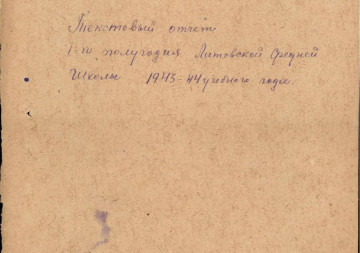 Текстовый отчет
I-го полугодия Литовской Средней
Школы 1943-44 учебного года.